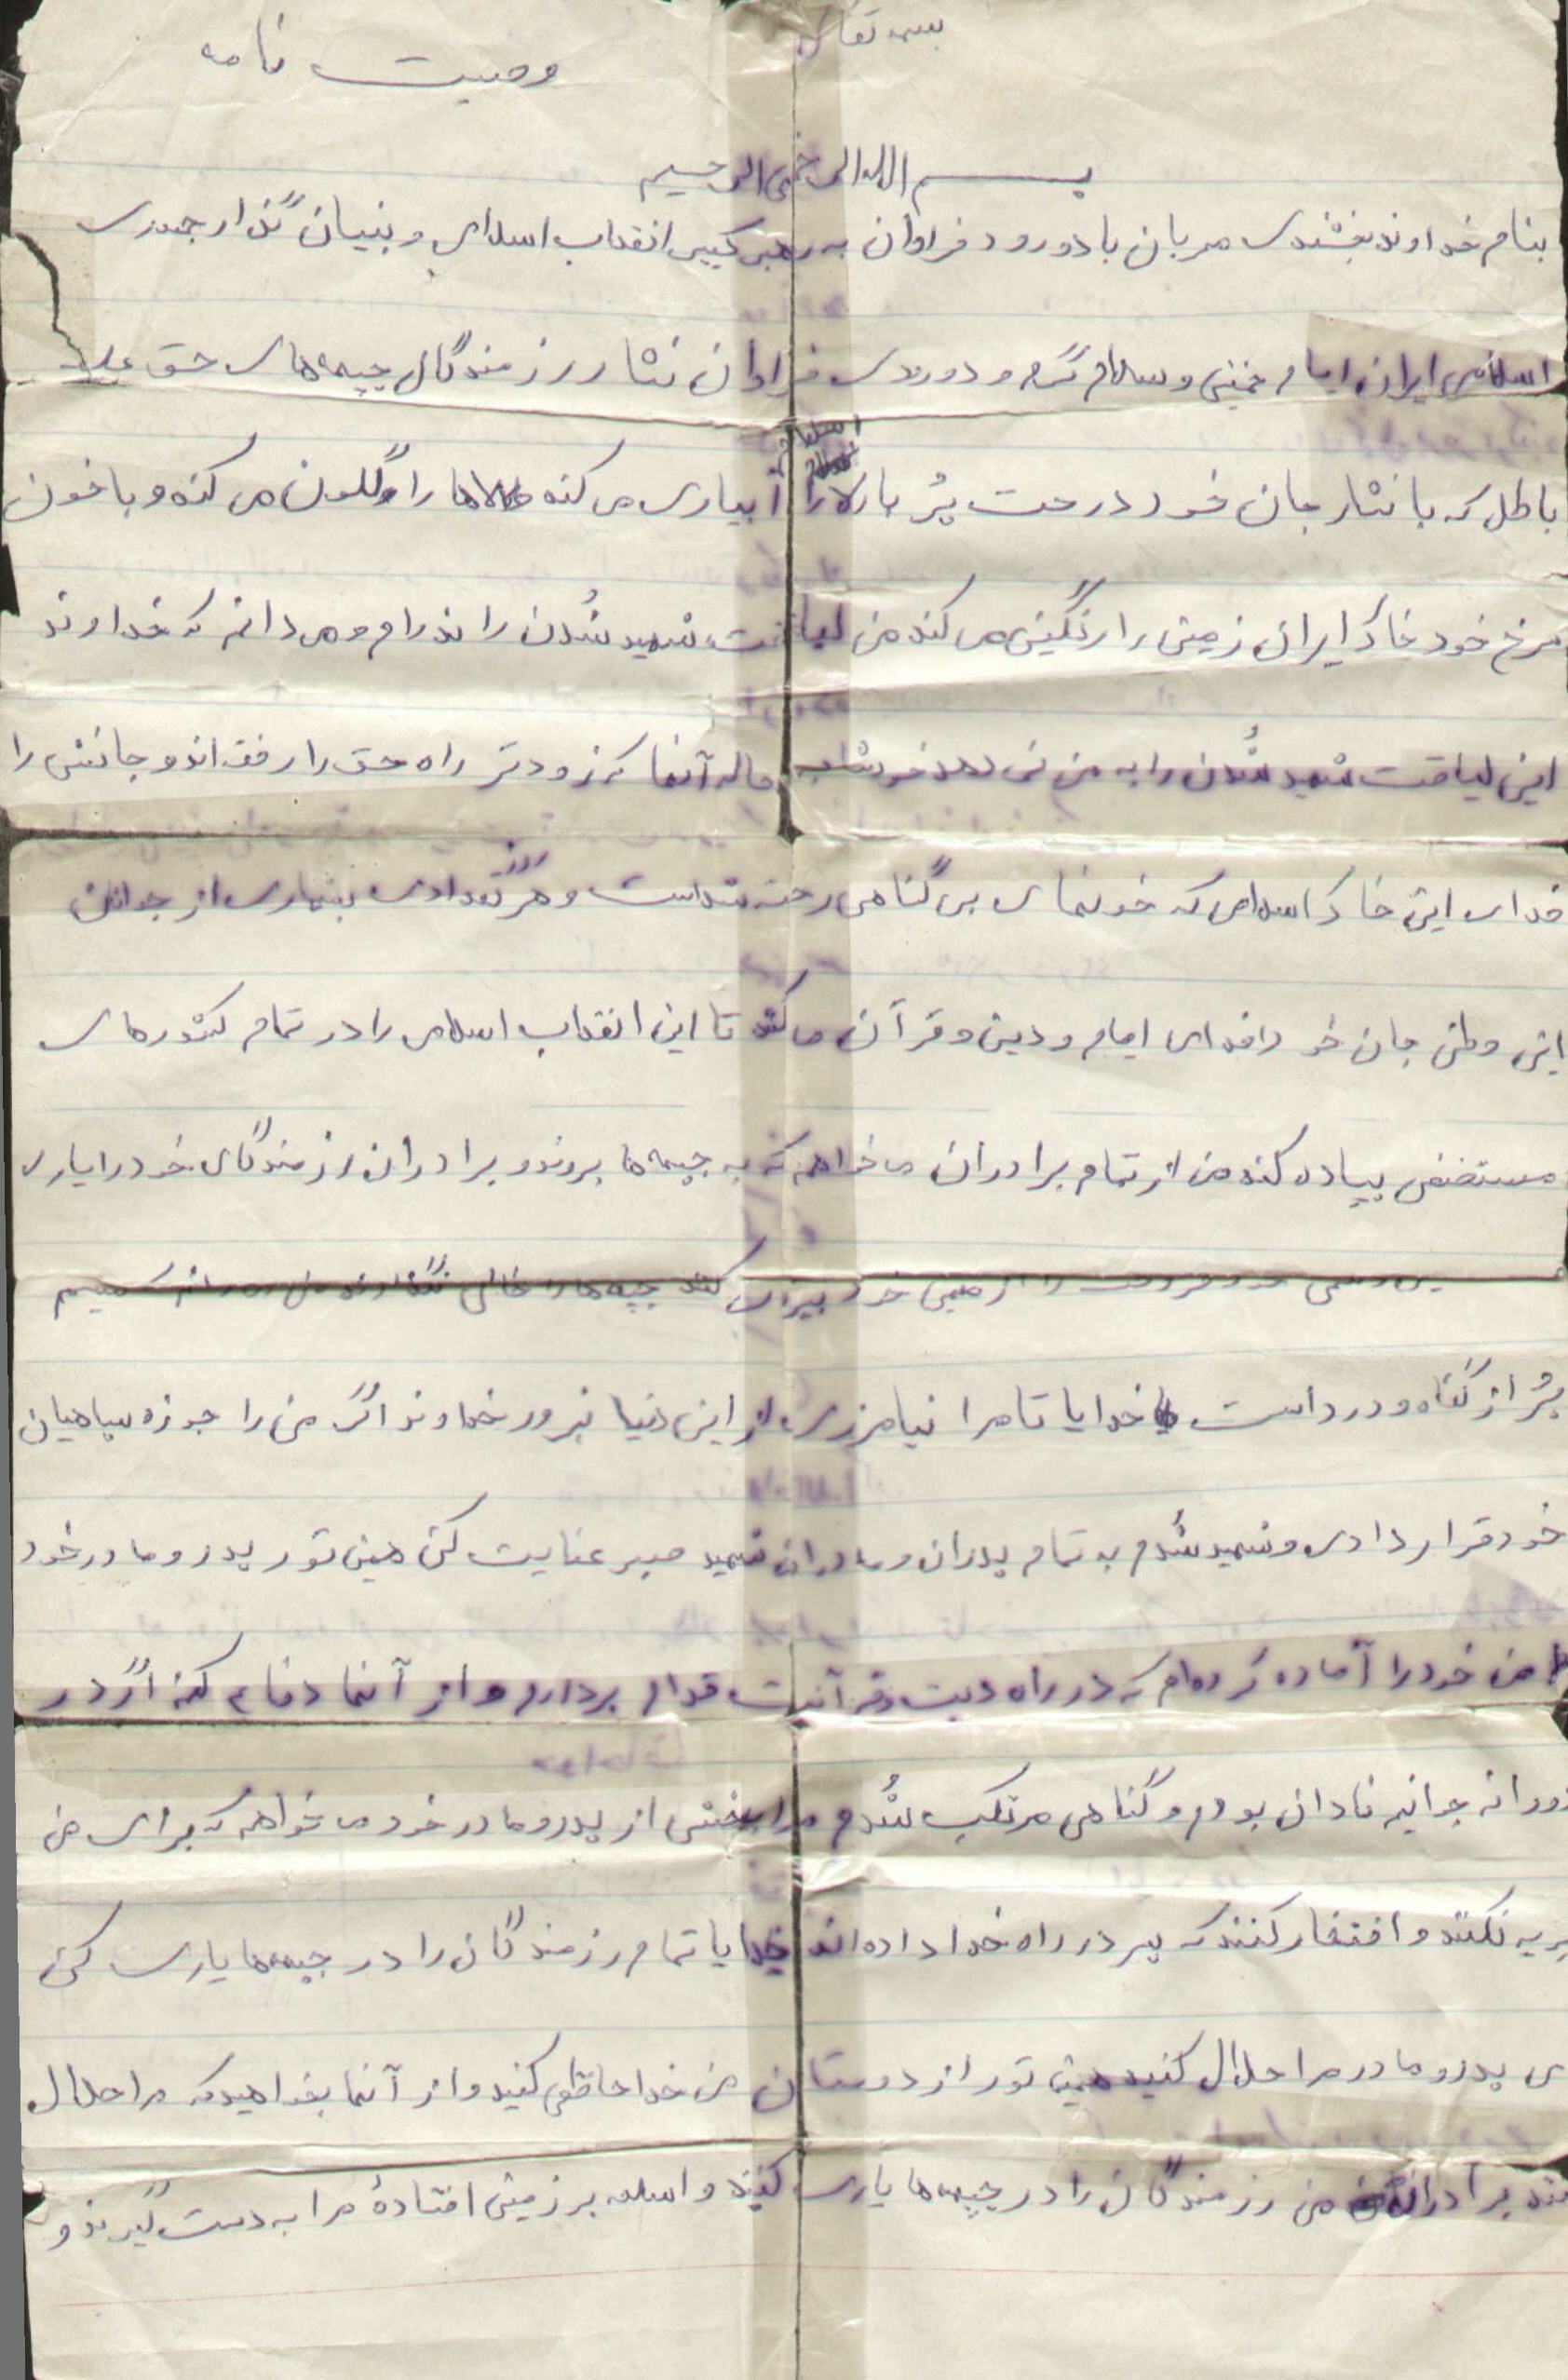 بسمه تعالی
وصیت نامه
بسم الله الرحمن الرحیم
بنام خداوند بخشندی مهربان با دورود فراوان به رهبر کبیر انقلاب اسلامی و بنیان گذار جمهوری
اسلامی ایران امام خمینی و سلام گرم و دورودی فراوان نثار رزمندگان جبهه های حق علیه
باطل که با نثار جان خود درخت پُر بار را آبیاری می کنه را گلگون می کنه و با خون
سرخ خود خاک ایران زمین را رنگین می کند من لیاقت شهید شُدن را ندرام و می دانم که خداوند
این لیاقت شهید شُدن را به من نمی دهد خوشا به حاله آنها که زودتر راه حق را رفته اند و جانش را
فدای این خاک اسلامی که خونهای بی گناهی رخته شداست و هر روز تعدادی بیشماری از جوانان
این وطن جان خو رافدای امام و دین و قرآن می کند تا این انقلاب اسلامی را در تمام کشورهای
مستضعفی پیاده کنه من از تمام برادران می خواهم که به جبهه ها بروند و برادران رزمندگان خود را یاری
را از میهن خود بیزان کنند جبهه ها را خالی نگذارند
پُر از گناه و درد است خدایا تا مرا نیامرزی از این دنیا نبر ور خداوند اگر من را جوزه سپاهیان
خود قرار دادی و شهید شُدم به تمام پدران و مادران شهید صبر عنایت کن همین تور پدر و مادر خود
من خود را آماده کرده ام که در راه دینت و قرآنت قدام بردارم و از آنها دفاع کنم اگر در
دورانه جوانیم نادان بودم و گناهی مرتکب شُدم مرا ببخش از پدر و مادر خود می خواهم که برای من
گریه نکنند و افتخار کنند که پسر در راه خدا داده اند خدایا تمام رزمندگان را در جبهه ها یاری کن
ی پدر و مادر مرا حلال کنید همین تور از دوستان من خدا حافظی کنید و از آنها بخواهید که مرا حلال
کنند برادران من رزمندگان را در جبهه ها یاری کنیند و اسلحه بر زمین افتادهٔ مرا به دست گیرند و